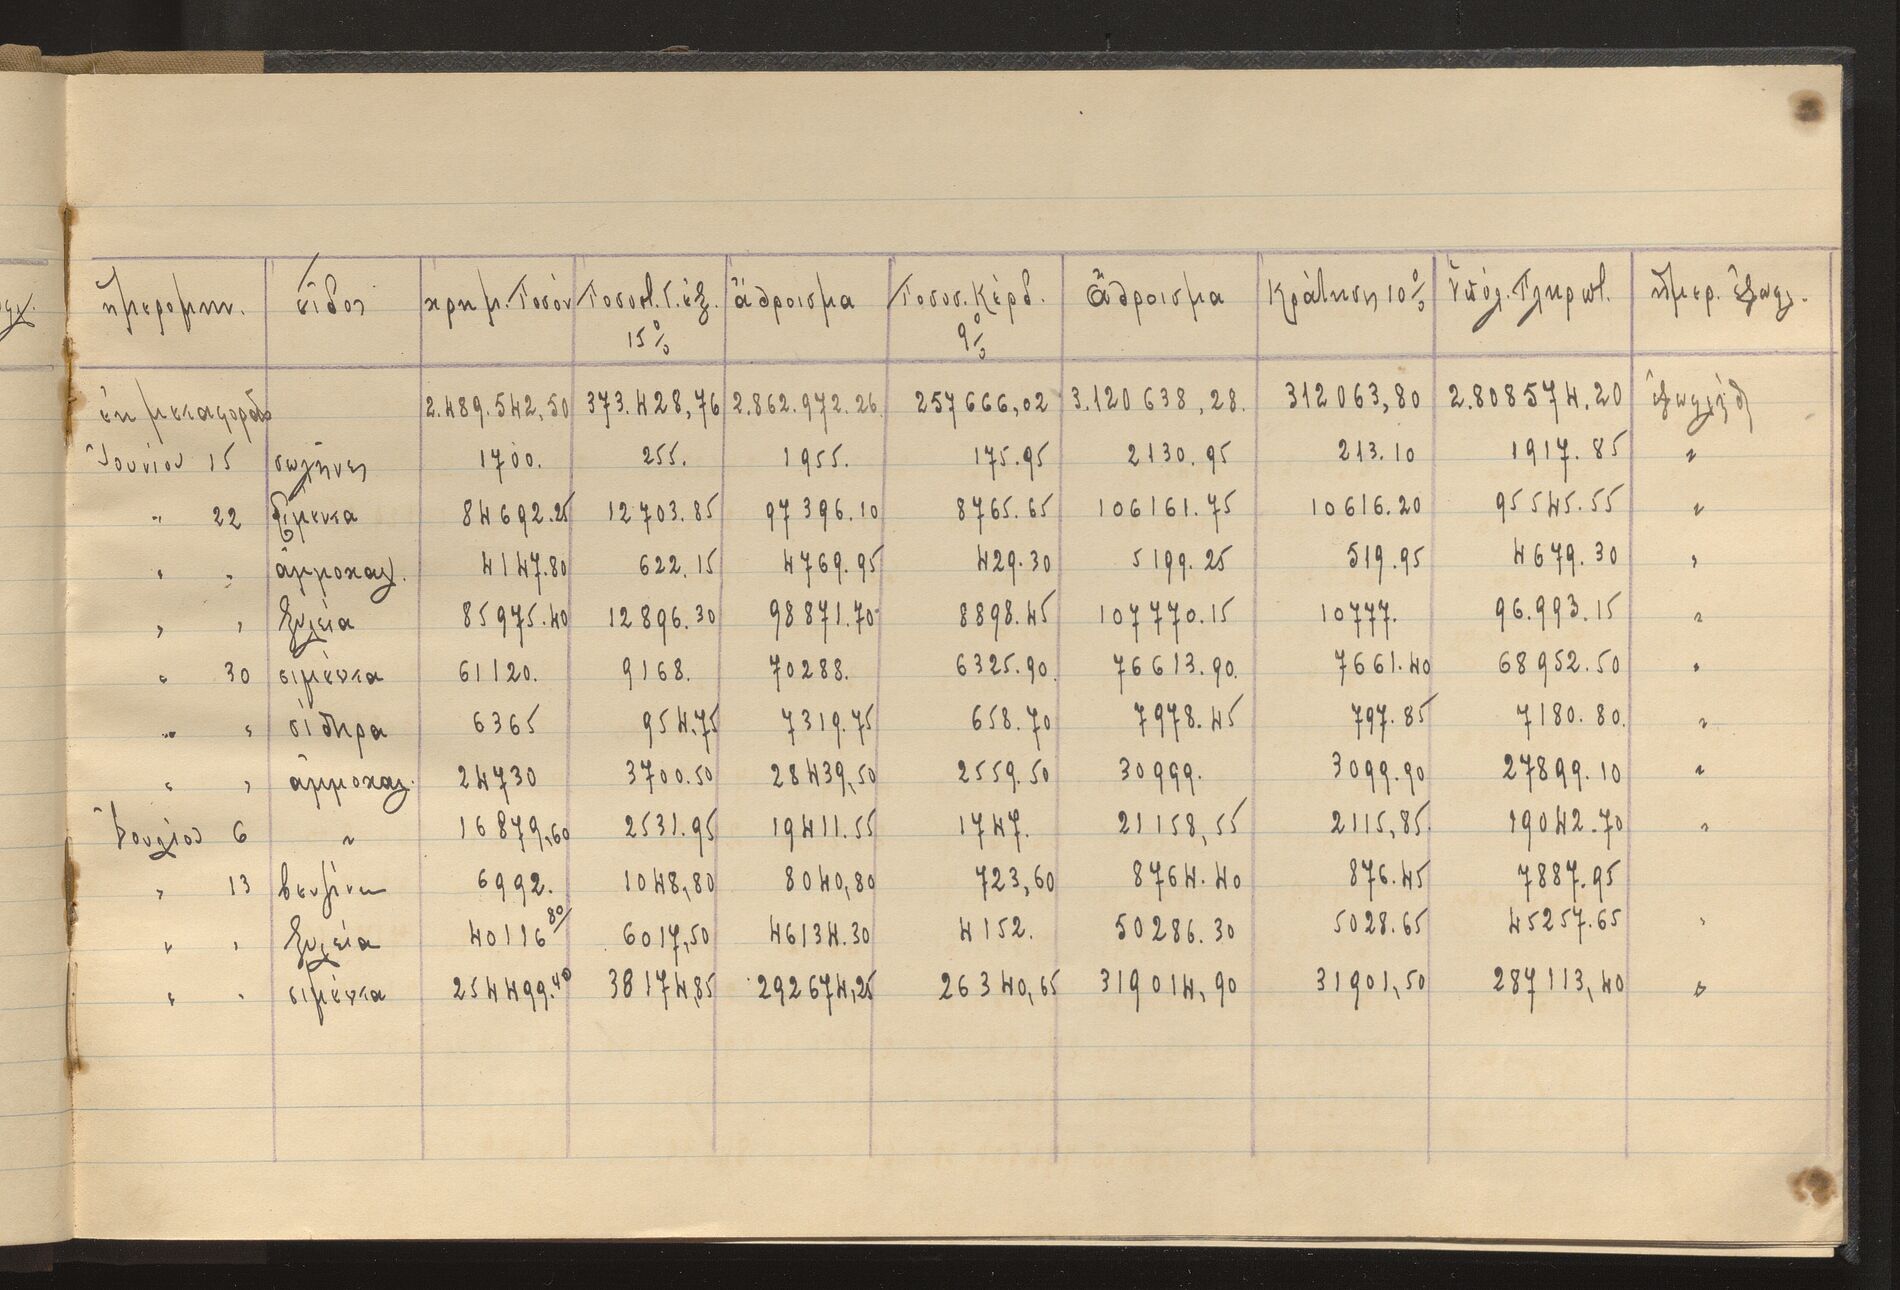 ἡμερομην. εἶδος χρημ. Ποσόν Ποσοστ. Γ. ἐξ. 15% ἄθροισμα Ποσοσ. Κέρδ. 9% ἄθροισμα Κράτησις 10% Ὑπόλ. Πληρωτ. ἡμερ. ἐξοφλ.
ἐκ μεταφορᾶς 2.489.542,50 373.428,76 2.862.972.26 257666,02 3.120638,28. 312063,80 2.808574.20 ἐξωφλήθ
Ἰουνίου 15 σωλῆνες 1700. 255. 1955. 175.95 2130.95 213.10 1917.85 "
" 22 σιμέντα 84692.25 12703.85 97396.10 8765.65 106161.75 10616.20 95545.55 "
" " ἀμμοχαλ. 4147.80 622.15 4769.95 429.30 5199.25 519.95 4679.30 "
" " ξυλεία 85975.40 12896.30 98871.70 8898.45 107770.15 10777. 96.993.15 "
" 30 σιμέντα 61120. 9168. 70288. 6325.90. 76613.90. 7661.40 68952.50 "
" " σίδηρα 6365 954.75 7319.75 658.70 7978.45 797.85 7180.80. "
" " ἀμμοχαλ. 24730 3700.50 28439,50 2559.50 30999. 3099.90 27899.10 "
Ἰουλίου 6 " 16879,60 2531.95 19411.55 1747. 21158,55 2115,85. 19042.70 "
" 13 βενζίνα 6992. 1048,80 8040,80 723,60 8764.40 876.45 7887.95
" " ξυλεία 40116 80/ 6017,50 46134.30 4152. 50286.30 5028.65 45257.65 "
" " σιμέντα 254499.40 38174,85 292674,25 26340,65 319014,90 31901,50 287113,40 "